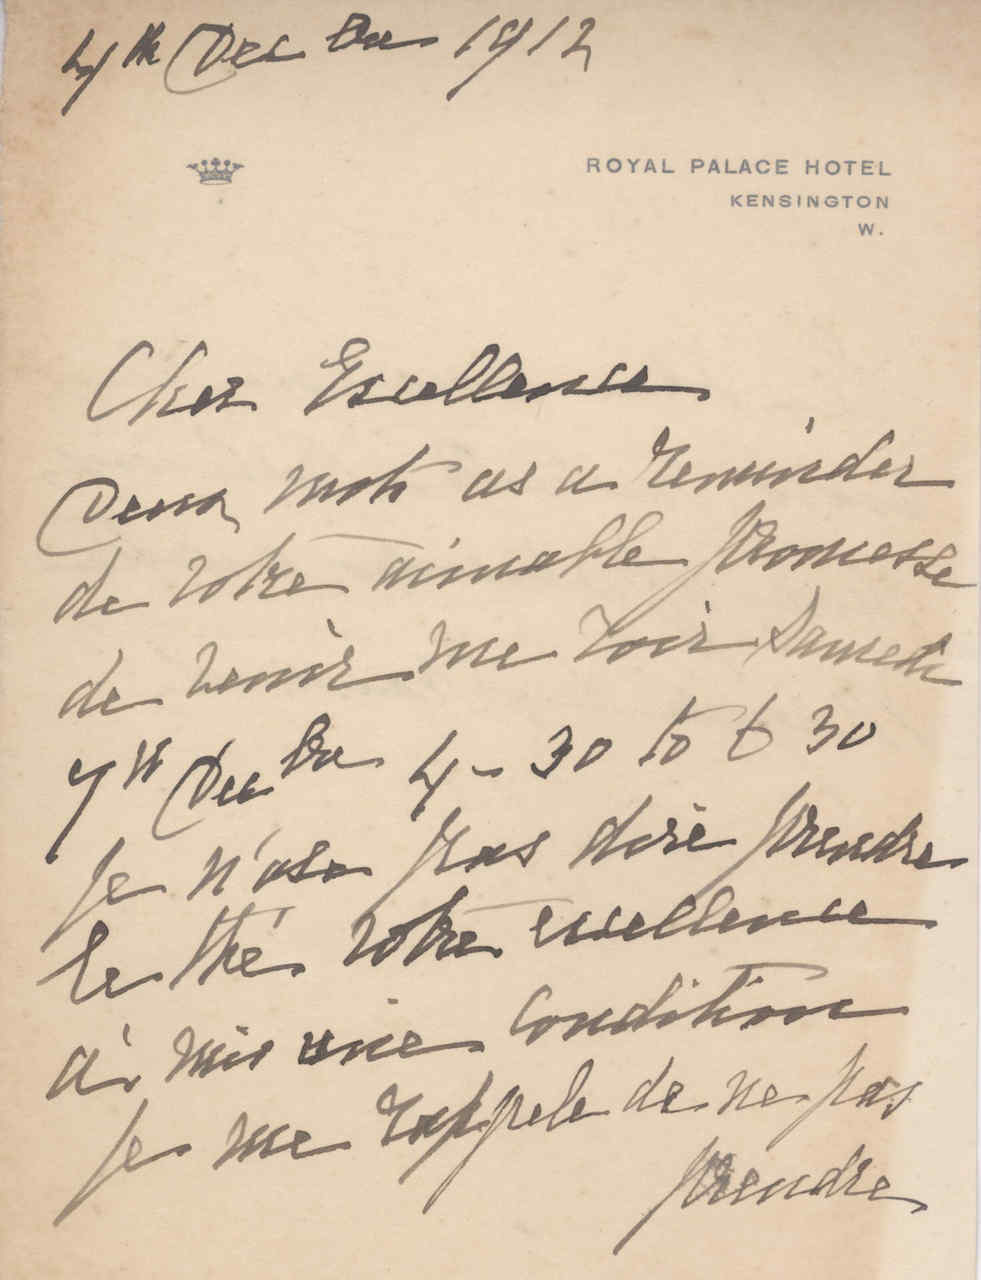 4th Decbre 1912
ROYAL PALACE HOTEL
KENSINGTON
W.
Cher Excellence
Deux mots as a reminder
de votre aimable promesse
de venir me voir Samedi
7th Decbre 4-30 to 6 30
Je n'ose pas dire prendre
le thé votre excellence
a mis une condition
Je me rappele de ne pas
prendre